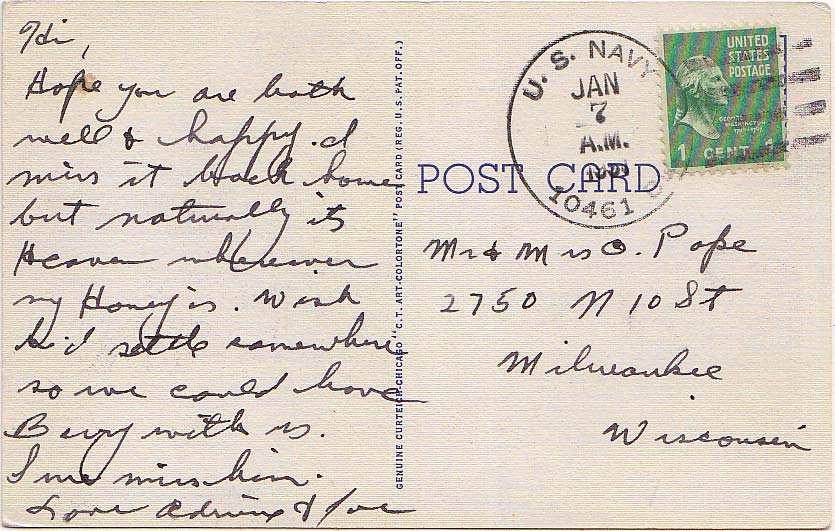 Hi,
Hope you are both
well & happy. I
miss it back home
but naturally its
Heaven wherever
my Honey is. Wish
he'd settle somewhere
so we could have
with us.
I miss him.
Love & Joe
GENUINE CURTEICH-CHICAGO "C.T. ART-COLORTONE" POST CARD (REG. U.S. PAT. OFF.)
POST CARD
U.S. NAVY
JAN
7
A.M.
10461
UNITED
STATES
POSTAGE
GEORGE
WASHINGTON
1 CENT 1
Mr & Mrs O. Pope
2750 N 10 St
Milwaukee
Wisconsin